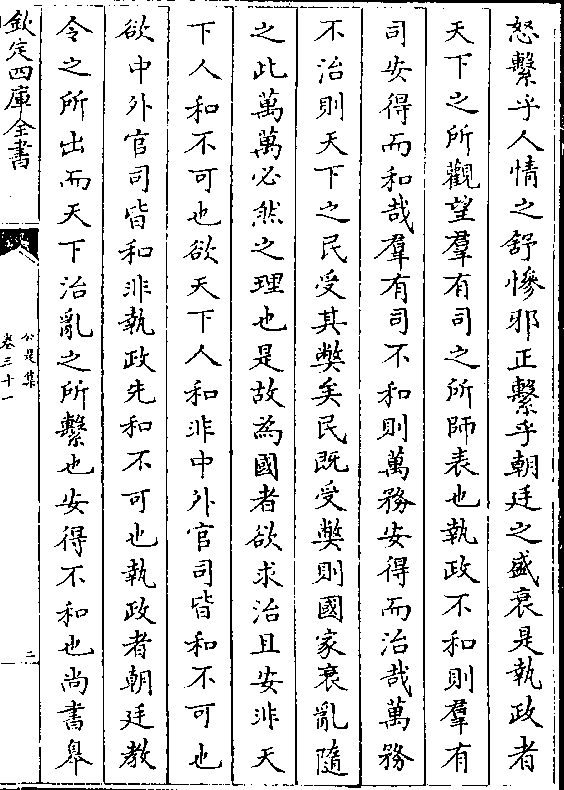 怒繫乎人情之舒慘邪正繫乎朝廷之盛衰是執政者
天下之所觀望羣有司之所師表也執政不和則羣有
司安得而和哉羣有司不和則萬務安得而治哉萬務
不治則天下之民受其弊矣民既受弊則國家衰亂隨
之此萬萬必然之理也是故為國者欲求治且安非天
下人和不可也欲天下人和非中外官司皆和不可也
欲中外官司皆和非執政先和不可也執政者朝廷教
令之所出而天下治亂之所繫也安得不和也尚書皋
欽定四庫全書
公是集
卷三十一
二